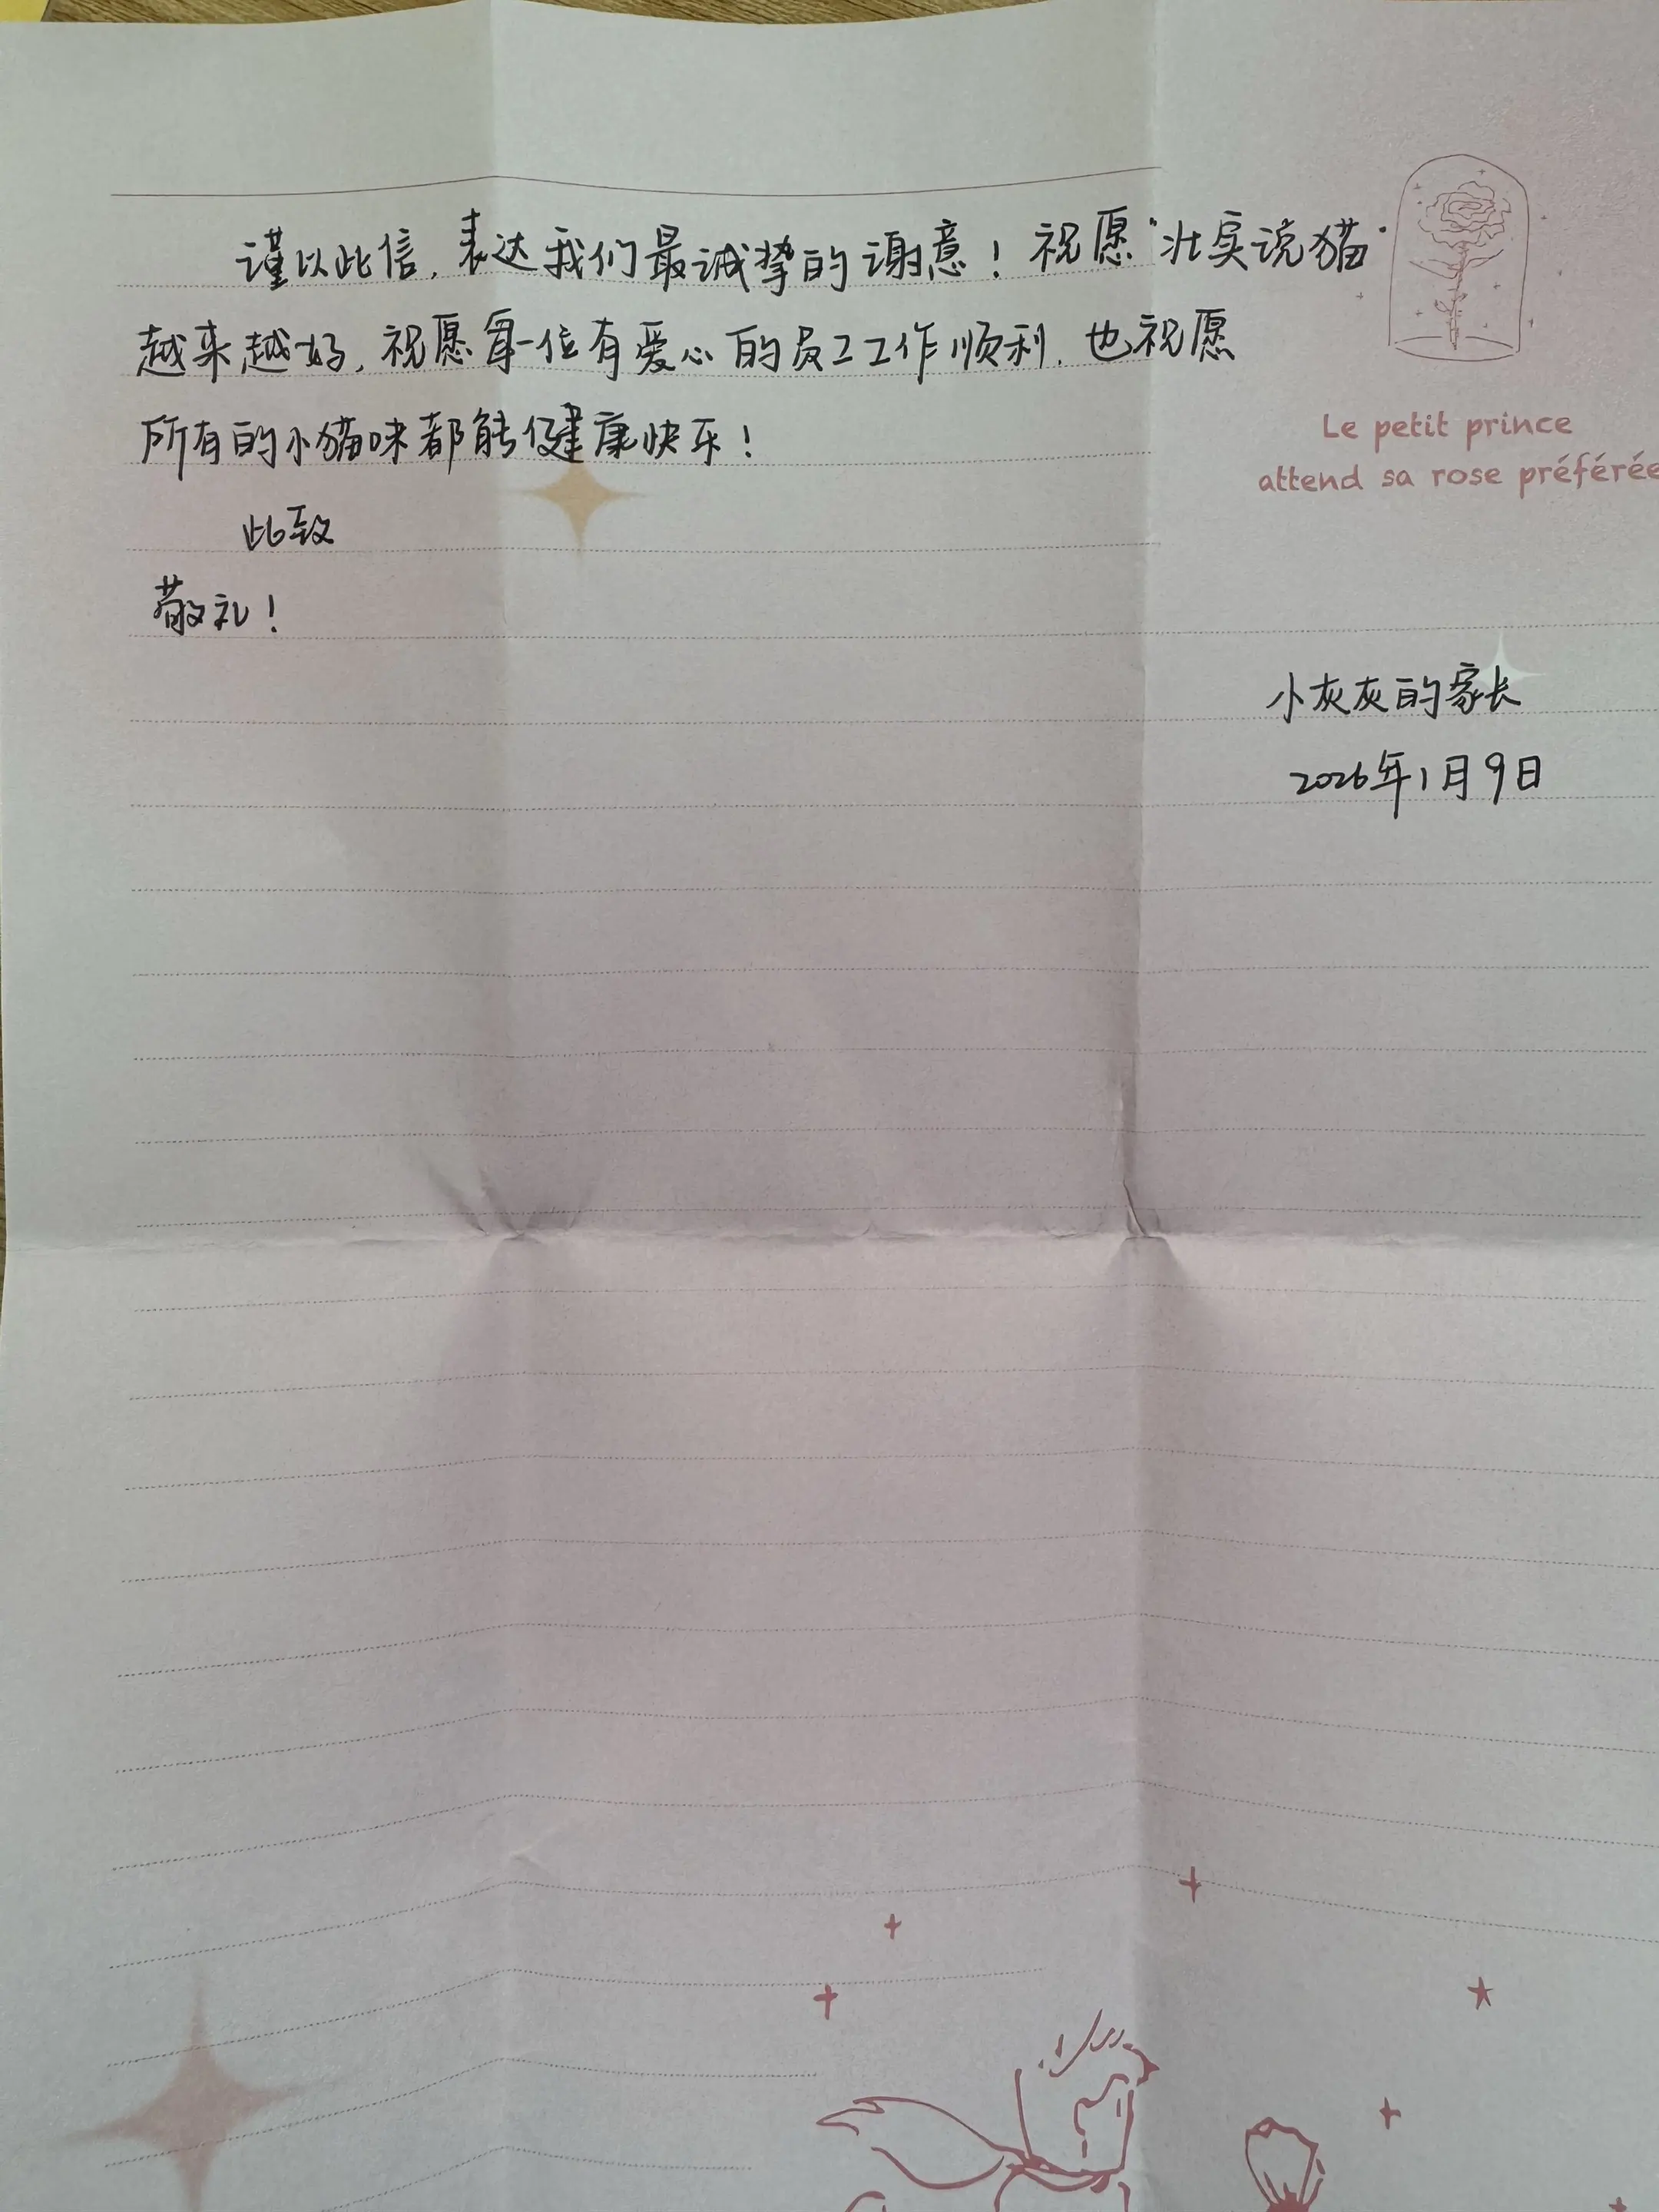 谨以此信，表达我们最诚挚的谢意！祝愿“壮实说猫”
越来越好，祝愿每一位有爱心的员工工作顺利，也祝愿
所有的小猫咪都能健康快乐！
此致
敬礼！
小灰灰的家长
2026年1月9日
Le petit prince
attend sa rose préférée